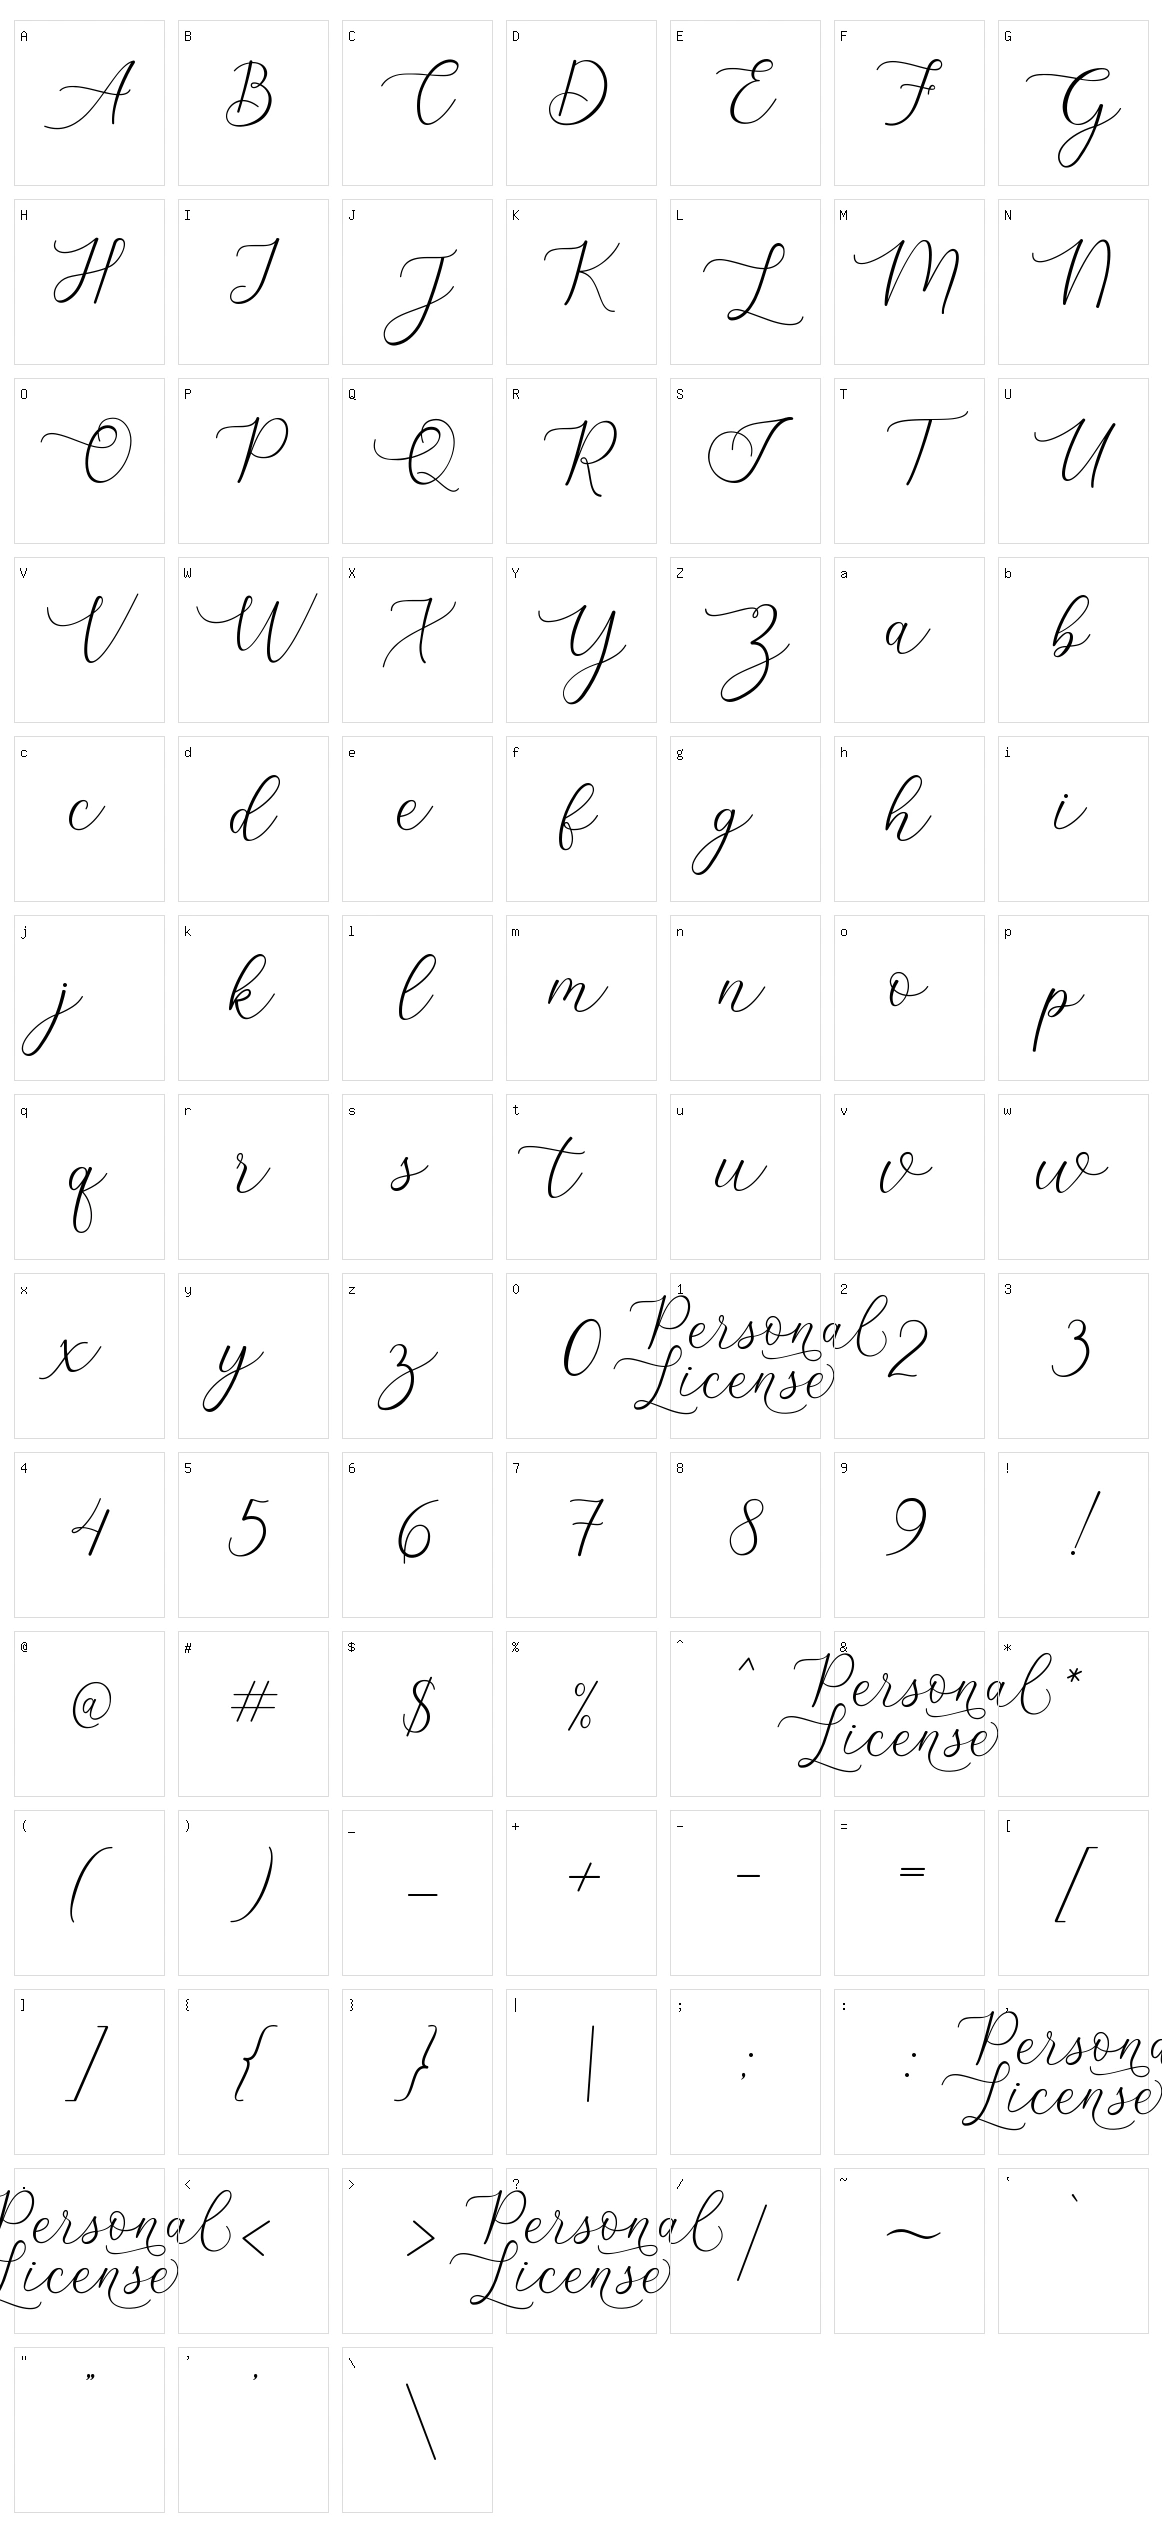 A B C D E F G
A B C D E F G
H I J K L M N
H I J K L M N
O P Q R S T U
O P Q R S T U
V W X Y Z a b
V W X Y Z a b
c d e f g h i
c d e f g h i
j k l m n o p
j k l m n o p
q r s t u v w
q r s t u v w
x y z 0 1 2 3
x y z 0 Personal License 2 3
4 5 6 7 8 9 !
4 5 6 7 8 9 !
@ # $ % ^ & *
@ # $ % ^ Personal License *
( ) _ + - = [
( ) _ + - = [
] { } | ; : ,
] { } | ; : Persona License
. < > ? / ~ `
Personal License < > Personal License / ~ `
" ' \
" ' \